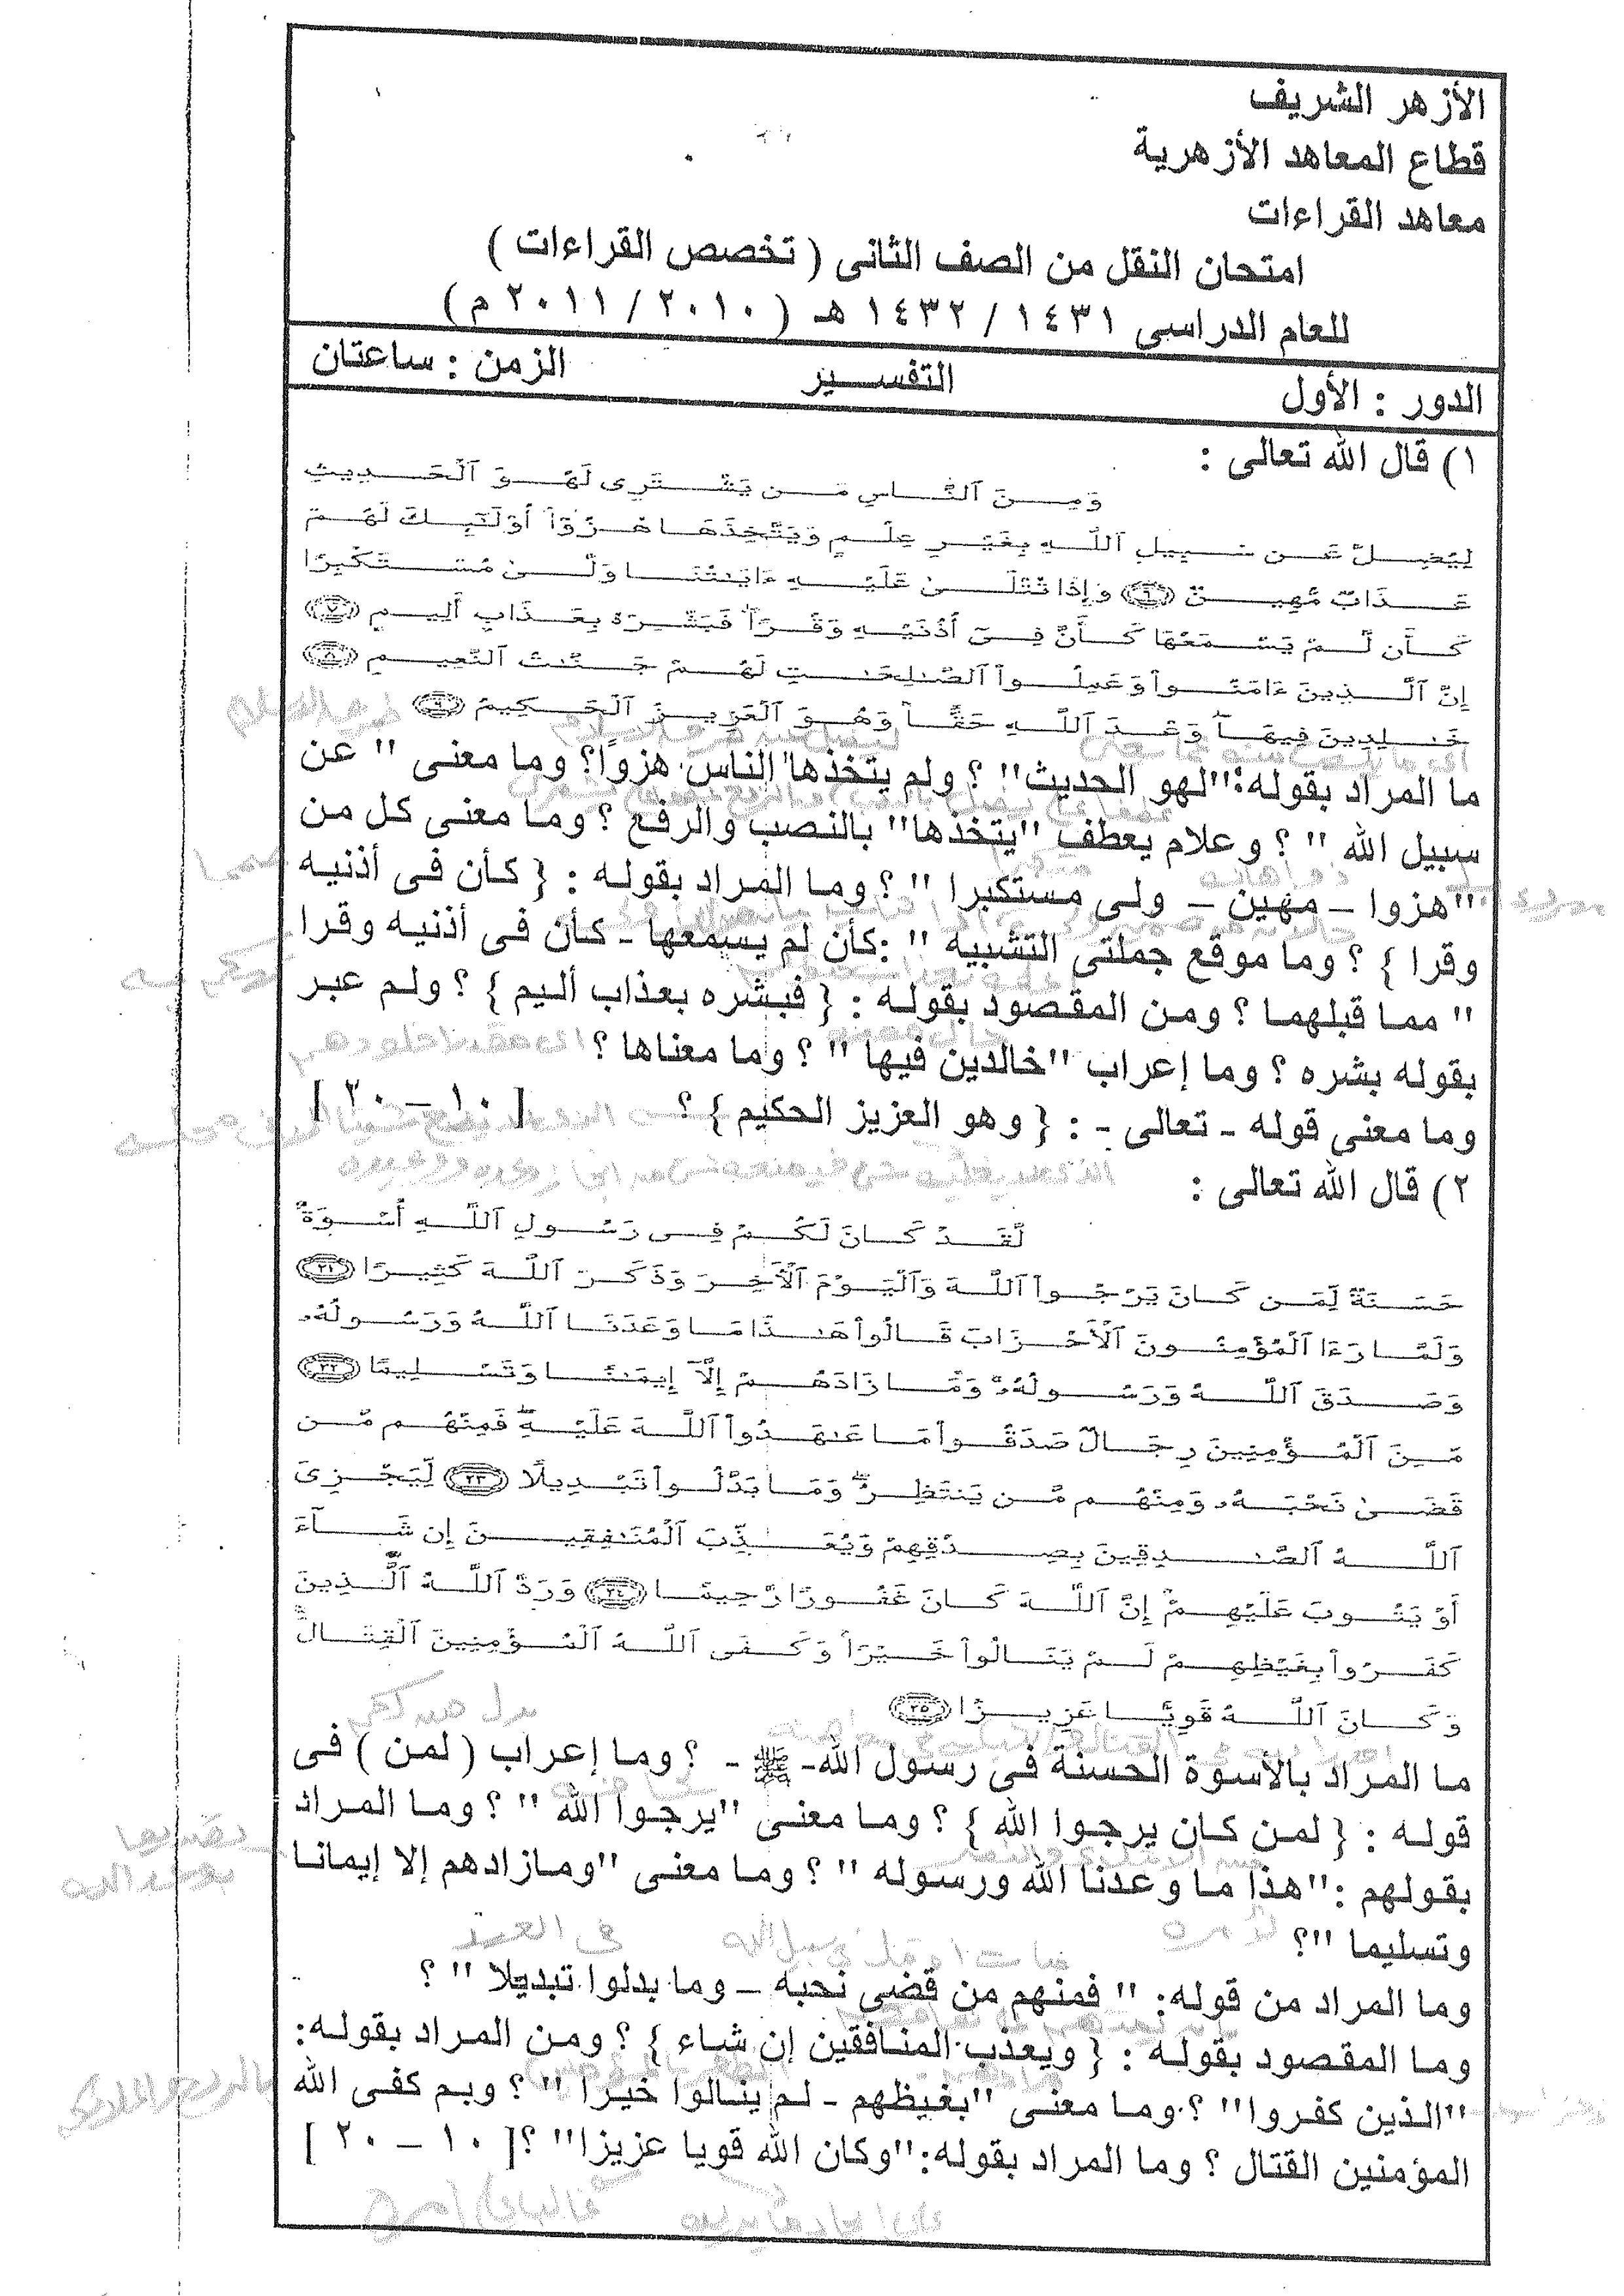 الأزهر الشريف
قطاع المعاهد الأزهرية
معاهد القراءات
امتحان النقل من الصف الثانى ( تخصص القراءات )
للعام الدراسى ١٤٣١ / ١٤٣٢ هـ ( ٢٠١٠ / ٢٠١١ م )
الدور : الأول التفسير الزمن : ساعتان
١) قال الله تعالى :
وَمِنَ ٱلنَّاسِ مَن يَشْتَرِى لَهْوَ ٱلْحَدِيثِ
لِيُضِلَّ عَن سَبِيلِ ٱللَّهِ بِغَيْرِ عِلْمٍ وَيَتَّخِذَهَا هُزُوًا أُوْلَٰٓئِكَ لَهُمْ
عَذَابٌ مُّهِينٌ ٦ وَإِذَا تُتْلَىٰ عَلَيْهِ ءَايَٰتُنَا وَلَّىٰ مُسْتَكْبِرًا
كَأَن لَّمْ يَسْمَعْهَا كَأَنَّ فِىٓ أُذُنَيْهِ وَقْرًا فَبَشِّرْهُ بِعَذَابٍ أَلِيمٍ ٧
إِنَّ ٱلَّذِينَ ءَامَنُوا۟ وَعَمِلُوا۟ ٱلصَّٰلِحَٰتِ لَهُمْ جَنَّٰتُ ٱلنَّعِيمِ ٨
خَٰلِدِينَ فِيهَا وَعْدَ ٱللَّهِ حَقًّا وَهُوَ ٱلْعَزِيزُ ٱلْحَكِيمُ ٩
ما المراد بقوله:"لهو الحديث" ؟ ولم يتخذها الناس هزوًا؟ وما معنى " عن
سبيل الله " ؟ وعلام يعطف "يتخذها" بالنصب والرفع ؟ وما معنى كل من
"هزوا – مهين – ولى مستكبرا " ؟ وما المراد بقوله : { كأن فى أذنيه
وقرا } ؟ وما موقع جملتى التشبيه " :كأن لم يسمعها - كأن فى أذنيه وقرا
" مما قبلهما ؟ ومن المقصود بقوله : { فبشره بعذاب أليم } ؟ ولم عبر
بقوله بشره ؟ وما إعراب "خالدين فيها " ؟ وما معناها ؟
وما معنى قوله - تعالى - : { وهو العزيز الحكيم } ؟ [ ١٠ – ٢٠ ]
٢) قال الله تعالى :
لَّقَدْ كَانَ لَكُمْ فِى رَسُولِ ٱللَّهِ أُسْوَةٌ
حَسَنَةٌ لِّمَن كَانَ يَرْجُوا۟ ٱللَّهَ وَٱلْيَوْمَ ٱلْءَاخِرَ وَذَكَرَ ٱللَّهَ كَثِيرًا ٢١
وَلَمَّا رَءَا ٱلْمُؤْمِنُونَ ٱلْأَحْزَابَ قَالُوا۟ هَٰذَا مَا وَعَدَنَا ٱللَّهُ وَرَسُولُهُۥ
وَصَدَقَ ٱللَّهُ وَرَسُولُهُۥ وَمَا زَادَهُمْ إِلَّآ إِيمَٰنًا وَتَسْلِيمًا ٢٢
مِّنَ ٱلْمُؤْمِنِينَ رِجَالٌ صَدَقُوا۟ مَا عَٰهَدُوا۟ ٱللَّهَ عَلَيْهِ فَمِنْهُم مَّن
قَضَىٰ نَحْبَهُۥ وَمِنْهُم مَّن يَنتَظِرُ وَمَا بَدَّلُوا۟ تَبْدِيلًا ٢٣ لِّيَجْزِىَ
ٱللَّهُ ٱلصَّٰدِقِينَ بِصِدْقِهِمْ وَيُعَذِّبَ ٱلْمُنَٰفِقِينَ إِن شَآءَ
أَوْ يَتُوبَ عَلَيْهِمْ إِنَّ ٱللَّهَ كَانَ غَفُورًا رَّحِيمًا ٢٤ وَرَدَّ ٱللَّهُ ٱلَّذِينَ
كَفَرُوا۟ بِغَيْظِهِمْ لَمْ يَنَالُوا۟ خَيْرًا وَكَفَى ٱللَّهُ ٱلْمُؤْمِنِينَ ٱلْقِتَالَ
وَكَانَ ٱللَّهُ قَوِيًّا عَزِيزًا ٢٥
ما المراد بالأسوة الحسنة فى رسول الله- ﷺ - ؟ وما إعراب ( لمن ) فى
قوله : { لمن كان يرجوا الله } ؟ وما معنى "يرجوا الله " ؟ وما المراد
بقولهم :"هذا ما وعدنا الله ورسوله " ؟ وما معنى "ومازادهم إلا إيمانا
وتسليما "؟
وما المراد من قوله: " فمنهم من قضى نحبه – وما بدلوا تبديلا " ؟
وما المقصود بقوله : { ويعذب المنافقين إن شاء } ؟ ومن المراد بقوله:
"الذين كفروا" ؟ وما معنى "بغيظهم - لم ينالوا خيرا " ؟ وبم كفى الله
المؤمنين القتال ؟ وما المراد بقوله:"وكان الله قويا عزيزا" ؟[ ١٠ – ٢٠ ]